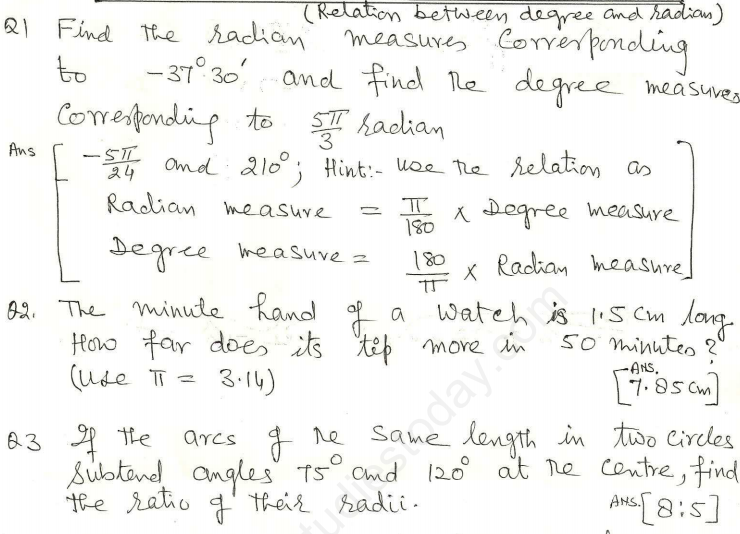 (Relation between degree and radian)
Q1 Find the radian measures Corresponding
to -37°30' and find the degree measures
Corresponding to 5π/3 radian
Ans [ -5π/24 and 210°; Hint:- use the relation as
Radian measure = π/180 x Degree measure
Degree measure = 180/π x Radian measure]
Q2. The minute hand of a watch is 1.5 cm long.
How far does its tip more in 50 minutes?
(Use π = 3.14) ANS. [7.85 cm]
Q3 If the arcs of the same length in two circles
Subtend angles 75° and 120° at the centre, find
the ratio of their radii. ANS. [8:5]
studiestoday.com